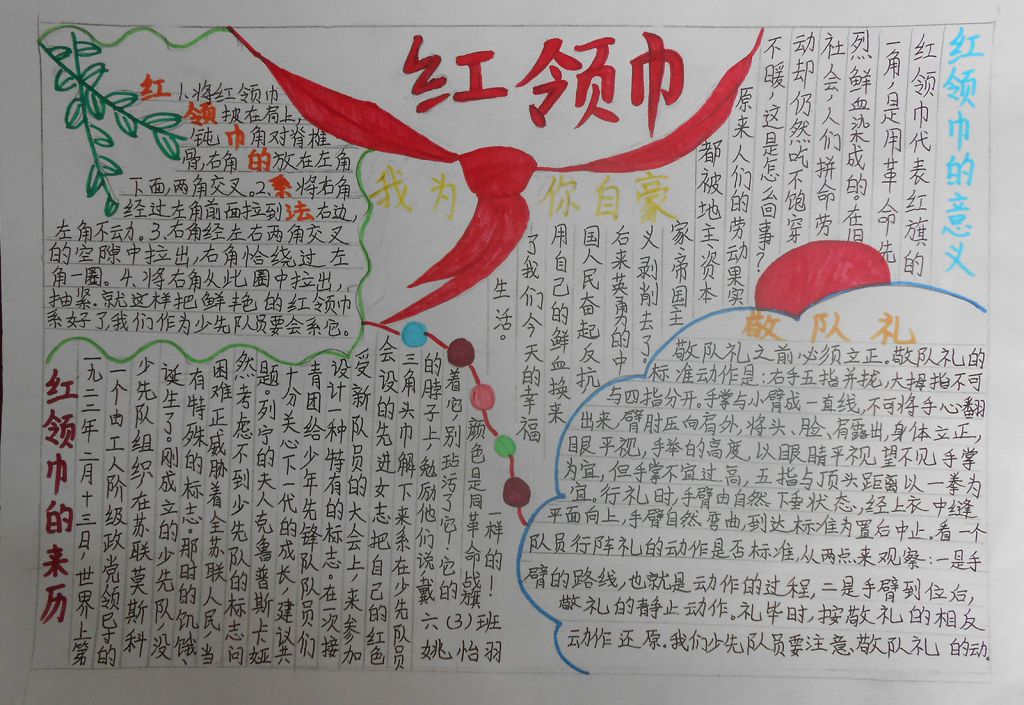 红领巾
我为你自豪
红 1.将红领巾
领 披在肩上,
钝 巾 角对脊椎
骨,右角 的 放在左角
下面,两角交叉。2.系 将右角
经过左角前面拉到 法 右边,
左角不动。3.右角经左右两角交叉
的空隙中拉出,右角恰绕过左
角一圈。4.将右角从此圈中拉出,
抽紧.就这样把鲜艳的红领巾
系好了,我们作为少先队员要会系它。
红领巾的意义
红领巾代表红旗的
一角,是用革命先
烈鲜血染成的。在旧
社会,人们拼命劳
动却仍然吃不饱穿
不暖,这是怎么回事?
原来人们的劳动果实
都被地主、资本
家、帝国主
义剥削去了。
后来英勇的中
国人民奋起反抗
用自己的鲜血换来
了我们今天的幸福
生活。
红领巾的来历
一九二二年二月十三日,世界上第
一个由工人阶级政党领导的
少先队组织在苏联莫斯科
诞生了。刚成立的少先队没
有特殊的标志。那时的饥饿、
困难正威胁着全苏联人民,当
然考虑不到少先队的标志问
题。列宁的夫人克鲁普斯卡娅
十分关心下一代的成长,建议共
青团给少年先锋队队员们
设计一种特有的标志。在一次接
受新队员的大会上,来参加
会设的先进女志把自己的红色
三角头巾解下来系在少先队员
的脖子上,勉励他们说戴
着它,别玷污了它!它的
颜色是同革命战旗
一样的!
六(3)班
姚怡羽
敬队礼
敬队礼之前必须立正。敬队礼的
标准动作是:右手五指并拢,大拇指不可
与四指分开。手掌与小臂成一直线,不可将手心翻
出来,臂肘压向肩外,将头、脸、肩露出,身体立正,
眼平视,手举的高度,以眼睛平视望不见手掌
为宜,但手掌不宜过高,五指与顶头距离以一拳为
宜。行礼时,手臂由自然下垂状态,经上衣中缝
平面向上,手臂自然弯曲,到达标准为置后中止。看一个
队员行阵礼的动作是否标准,从两点来观察:一是手
臂的路线,也就是动作的过程,二是手臂到位后,
敬礼的静止动作。礼毕时,按敬礼的相反
动作还原.我们少先队员要注意敬队礼的动。